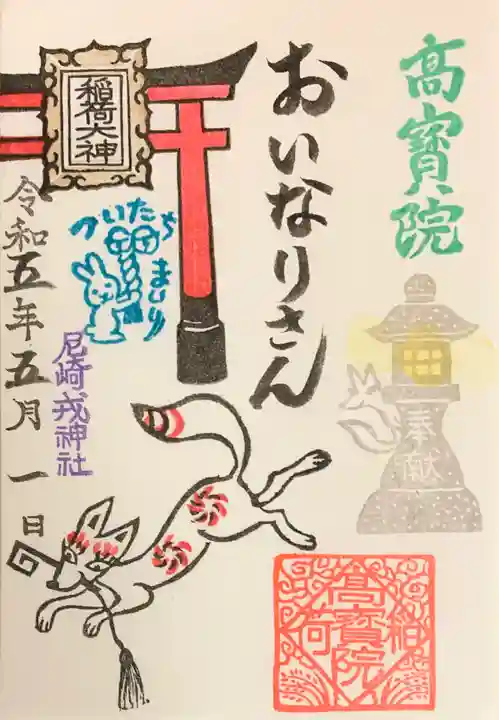 高寳院
奉献
おいなりさん
稲荷大神
ついたち
まいり
尼崎戎神社
令和五年五月一日
稲荷
高寳院